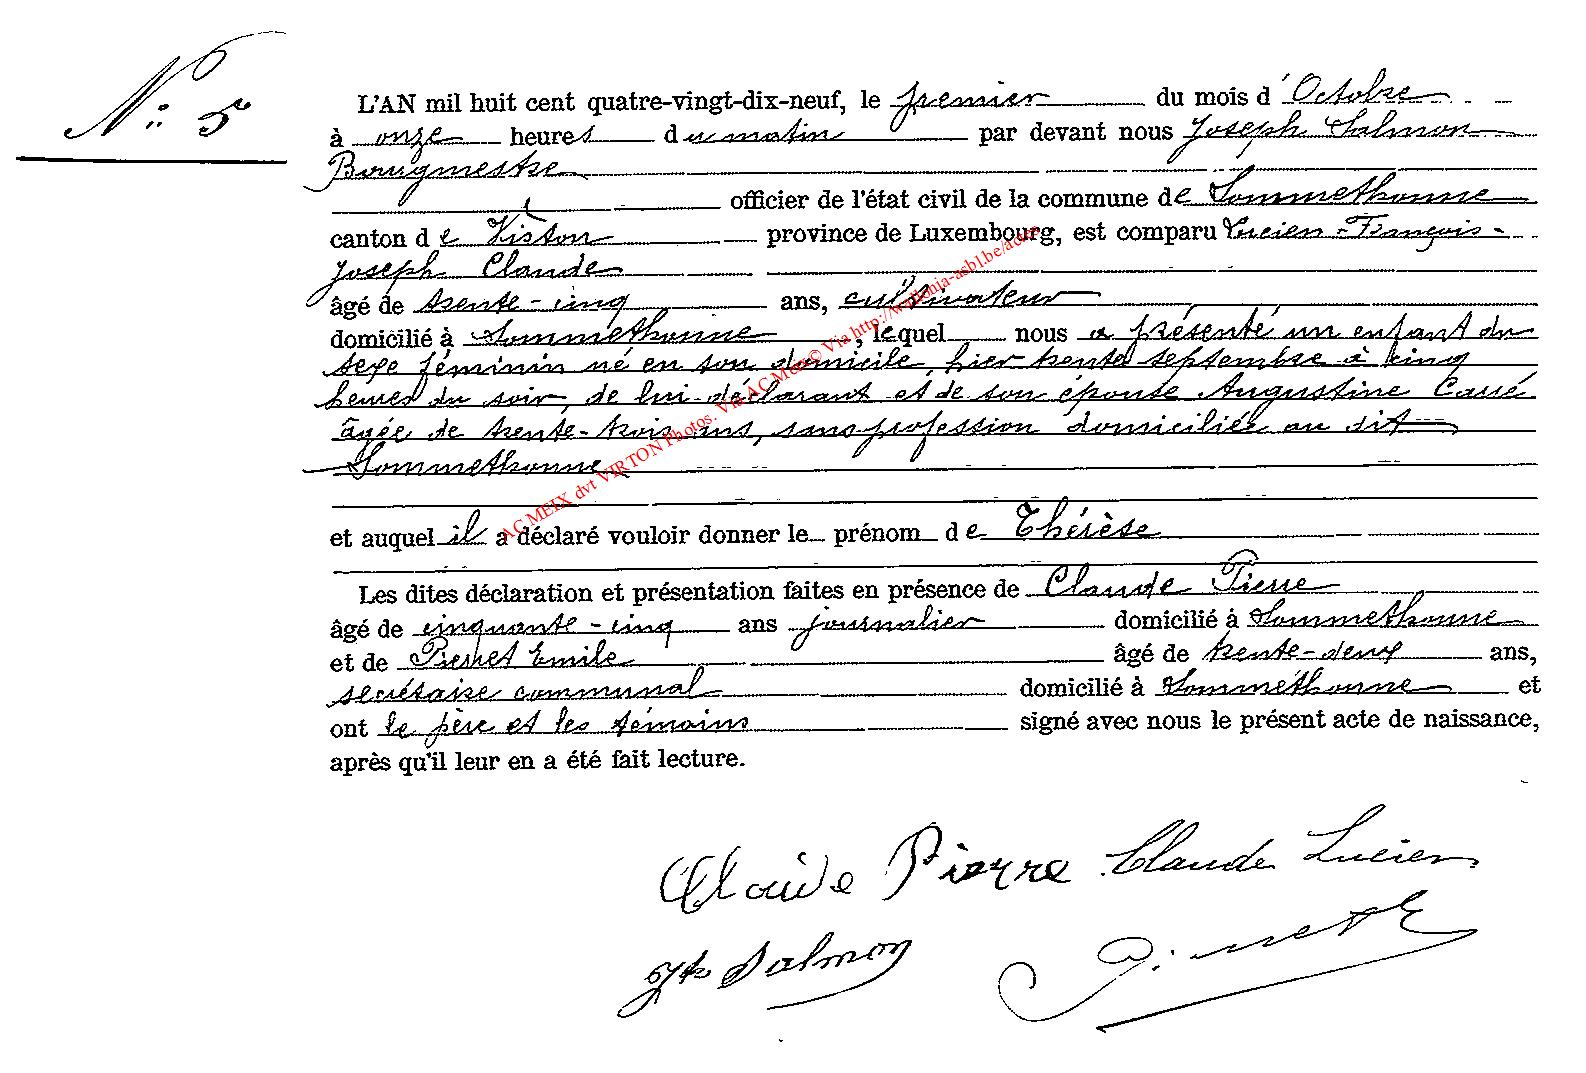 N° 5
L'AN mil huit cent quatre-vingt-dix-neuf, le premier du mois d'Octobre
à onze heures du matin par devant nous Joseph Salmon
Bourgmestre
officier de l'état civil de la commune de Sommethonne
canton de Virton province de Luxembourg, est comparu Lucien-François-
Joseph Claude
âgé de trente-cinq ans, cultivateur
domicilié à Sommethonne, lequel nous a présenté un enfant du
sexe féminin né en son domicile, hier trente septembre à cinq
heures du soir, de lui déclarant et de son épouse Augustine Carré
âgée de trente-trois ans, sans profession domiciliée au dit
Sommethonne
et auquel il a déclaré vouloir donner le prénom de Thérèse
Les dites déclaration et présentation faites en présence de Claude Pierre
âgé de cinquante-cinq ans journalier domicilié à Sommethonne
et de Pierret Emile âgé de trente-deux ans,
secrétaire communal domicilié à Sommethonne et
ont le père et les témoins signé avec nous le présent acte de naissance,
après qu'il leur en a été fait lecture.
Claude Pierre Claude Lucien
Jh Salmon
AC MEIX dvt VIRTON Photos. Via AC Meix© Via http://wallonia-asbl.be/actes